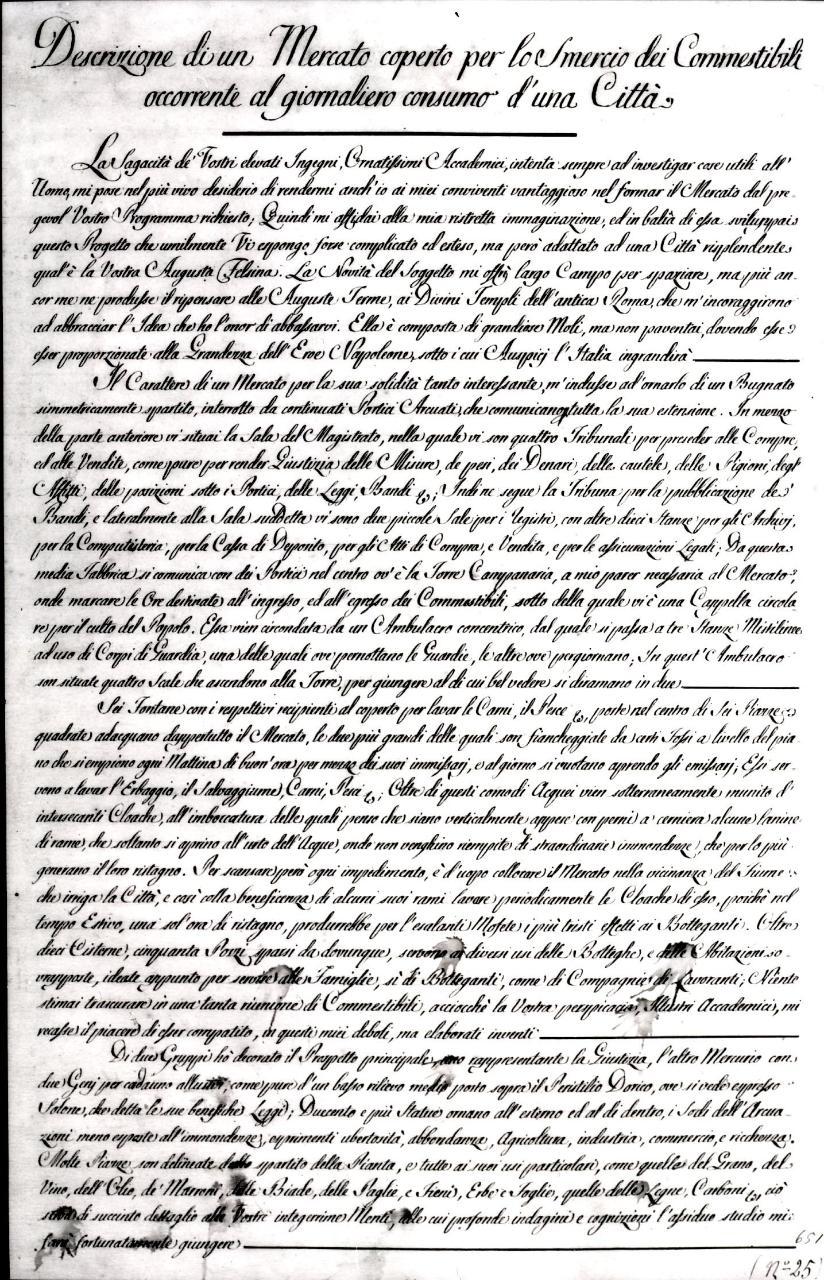 Descrizione di un Mercato coperto per lo Smercio dei Commestibili
occorrente al giornaliero consumo d'una Città
La Sagacità de' Vostri elevati Ingegni, Ornatissimi Accademici, intenta sempre ad investigar cose utili all'
Uomo, mi pose nel più vivo desiderio di rendermi anch'io ai miei conviventi vantaggioso nel formar il Mercato dal pre=
gevol Vostro Programma richiesto; Quindi mi affidai alla mia ristretta immaginazione, ed in balìa di essa sviluppai
questo Progetto che umilmente Vi espongo forse complicato ed esteso, ma però adattato ad una Città risplendente
qual'è la Vostra Augusta Felsina. La Novità del Soggetto mi offrì largo Campo per spaziare, ma più an=
cor me ne produsse il ripensare alle Auguste Terme, ai Divini Templi dell'antica Roma, che m'incoraggirono
ad abbracciar l'Idea che ho l'onor di abbassarvi. Ella è composta di grandiose Moli, ma non paventai, dovendo esse
esser proporzionate alla Grandezza dell'Eroe Napoleone, sotto i cui Auspicj l'Italia ingrandirà
Il Carattere di un Mercato per la sua solidità tanto interessante, m'indusse ad ornarlo di un Bugnato
simmetricamente spartito, interrotto da continuati Portici Arcuati, che comunicano tutta la sua estensione. In mezzo
della parte anteriore vi situai la Sala del Magistrato, nella quale vi son quattro Tribunali per preseder alle Compre,
ed alle Vendite, come pure per render Giustizia delle Misure, de pesi, dei Denari, delle cautele, delle Pigioni, degl'
Affitti, delle posizioni sotto i Portici, delle Leggi, Bandi &; Indi ne segue la Tribuna per la pubblicazione de'
Bandi, e lateralmente alla Sala suddetta vi sono due piccole Sale per i Registri, con altre dieci Stanze per gli Archivj,
per la Computisteria, per la Cassa di Deposito, per gli Atti di Compra, e Vendita, e per le assicurazioni Legali; Da questa
media Fabbrica si comunica con dei Portici nel centro ov'è la Torre Campanaria, a mio parer necessaria al Mercato,
onde marcare le Ore destinate all'ingresso, ed all'egresso dei Commestibili, sotto della quale vi è una Cappella circola
re per il culto del Popolo. Essa vien circondata da un Ambulacro concentrico, dal quale si passa a tre Stanze Mistilinee
ad uso di Corpi di Guardia, una delle quali ove pernottano le Guardie, le altre ove pergiornano; In quest'Ambulacro
son situate quattro Scale che ascendono alla Torre, per giungere al di cui bel vedere si diramano in due
Sei Fontane con i respettivi recipienti al coperto per lavar le Carni, il Pesce &, poste nel centro di Sei Piazze
quadrate adacquano dappertutto il Mercato, le due più grandi delle quali son fiancheggiate da certi Fossi a livello del pia=
no che si empiono ogni Mattina di buon'ora per mezzo dei suoi immissarj, e al giorno si vuotano aprendo gli emissarj; Essi ser=
vono a lavar l'Erbaggio, il Salvaggiume, Carni, Pesci &; Oltre di questi comodi Acquei vien sotterraneamente munito d'
intersecanti Cloache, all'imboccatura delle quali penso che siano verticalmente appese con perni a cerniera alcune lamine
di rame, che soltanto si aprino all'urto dell'Acque, onde non venghino riempite di straordinarie immondezze, che per lo più
generano il loro ristagno. Per scansare però ogni impedimento, è d'uopo collocare il Mercato nella vicinanza del Fiume
che irriga la Città, e così colla beneficenza di alcuni suoi rami lavare periodicamente le Cloache di esso, poichè nel
tempo Estivo, una sol'ora di ristagno, produrrebbe per l'esalanti Mofete i più tristi effetti ai Botteganti. Oltre
dieci Cisterne, cinquanta Pozzi sparsi da dovunque, servono ai diversi usi delle Botteghe, e delle Abitazioni so=
vrapposte, ideate appunto per servire alle Famiglie, sì di Botteganti, come di Compagnie di Lavoranti; Niente
stimai trascurare in una tanta riunione di Commestibili, acciocchè la Vostra perspicacia, Illustri Accademici, mi
recasse il piacere di esser compatito, in questi miei deboli, ma elaborati inventi
Di due Gruppi hò decorato il Prospetto principale, uno rappresentante la Giustizia, l'altro Mercurio con
due Genj per cadauno allusivi, come pure d'un basso rilievo posto sopra il Peristilio Dorico, ove si vede espresso
Solone, che detta le sue benefiche Leggi; Duecento e più Statue ornano all'esterno ed al di dentro, i Sodi dell'Arcua=
zioni meno esposte all'immondezze, esprimenti ubertosità, abbondanza, Agricoltura, industria, commercio, e ricchezza.
Molte Piazze son delineate dallo spartito della Pianta, e tutte ai suoi usi particolari, come quelle del Grano, del
Vino, dell'Olio, de' Marroni, delle Biade, delle Paglie, e Fieni, Erbe e Foglie, quelle delle Legne, Carboni &, ciò
di succinto dettaglio alle Vostre integerrime Menti, alle cui profonde indagini e cognizioni l'assiduo studio mi
farà fortunatamente giungere
651
(Nº 25)